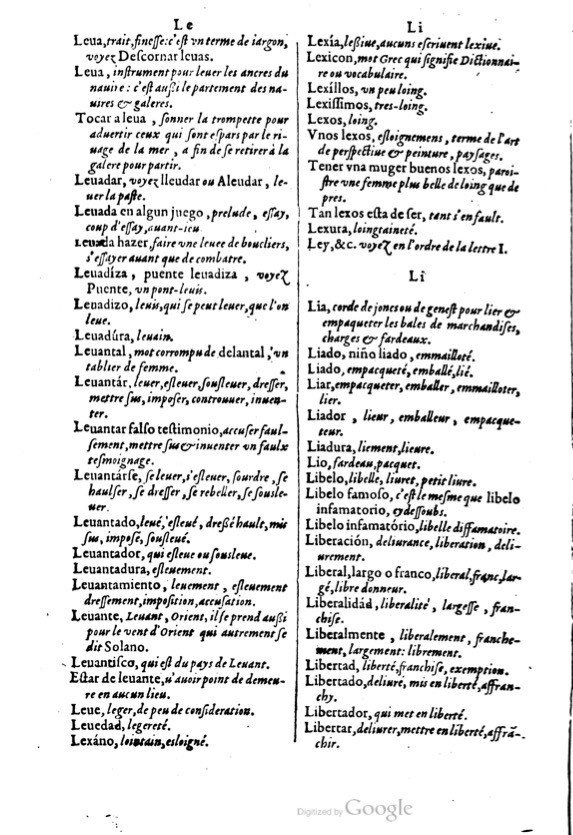 Le
Leua,trait,finesse:c'est vn terme de iargon,
voyez Descornar leuas.
Leua, instrument pour leuer les ancres du
nauire : c'est aussi le partement des na-
uires & galeres.
Tocar a leua , sonner la trompette pour
aduertir ceux qui sont espars par le ri-
uage de la mer , a fin de se retirer à la
galere pour partir.
Leuadar, voyez lleudar ou Aleudar, le-
uer la paste.
Leuada en algun juego , prelude , essay,
coup d'essay, auant-ieu
Leuada hazer, faire vne leuee de boucliers,
s'essayer auant que de combatre.
Leuadíza , puente leuadiza , voyez
Puente, vn pont-leuis.
Leuadizo, leuis, qui se peut leuer, que l'on
leue.
Leuadúra, leuain.
Leuantal, mot corrompu de delantal, vn
tablier de femme.
Leuantár, leuer, esleuer, sousleuer, dresser,
mettre sus, imposer, controuuer, inuen-
ter.
Leuantar falso testimonio, accuser faul-
sement, mettre sus & inuenter vn faulx
tesmoignage.
Leuantárse, se leuer, s'esleuer, sourdre , se
haulser , se dresser , se rebeller, se sousle-
uer.
Leuantado, leué, esleué , dressé hault, mis
sus, imposé, sousleué.
Leuantador, qui esleue ou sousleue.
Leuantadura, esleuement.
Leuantamiento , leuement , esleuement
dressement, imposition, accusation.
Leuante, Leuant , Orient, il se prend aussi
pour le vent d'Orient qui autrement se
dit Solano.
Leuantisco, qui est du pays de Leuant.
Estar de leuante, n'auoir point de demeu-
re en aucun lieu.
Leue, leger, de peu de consideration.
Leuedad, legereté.
Lexáno, lointain, esloigné.
Li
Lexía, lessiue, aucuns escriuent lexiue.
Lexicon, mot Grec qui signifie Dictionnai-
re ou vocabulaire.
Lexíllos, vn peu loing.
Lexissimos, tres-loing.
Lexos, loing.
Vnos lexos, esloignemens , terme de l'art
de perspectiue & peinture , paysages.
Tener vna muger buenos lexos, paroi-
stre vne femme plus belle de loing que de
pres.
Tan lexos esta de ser, tant s'en fault.
Lexura, loingtaineté.
Ley, &c. voyez en l'ordre de la lettre I.
Li
Lia, corde de joncs ou de genest pour lier &
empaqueter les bales de marchandises,
charges & fardeaux.
Liado, niño liado , emmailloté.
Liado, empacqueté, emballé, lié.
Liar, empacqueter, emballer, emmailloter,
lier.
Liador , lieur, emballeur, empacque-
teur.
Liadura, liement, lieure.
Lio, fardeau, pacquet.
Libelo, libelle, liuret, petit liure.
Libelo famoso, c'est le mesme que libelo
infamatorio, cy dessoubs.
Libelo infamatório, libelle diffamatoire.
Liberación, deliurance, liberation , deli-
urement.
Liberal, largo o franco, liberal, franc, lar-
gé, libre donneur.
Liberalidád, liberalité , largesse , fran-
chise.
Liberalmente , liberalement, franche-
ment, largement: librement.
Libertad, liberté, franchise, exemption.
Libertado, deliuré, mis en liberté, affran-
chy.
Libertador, qui met en liberté.
Libertar, deliurer, mettre en liberté, affrā-
chir.
Digitized by Google